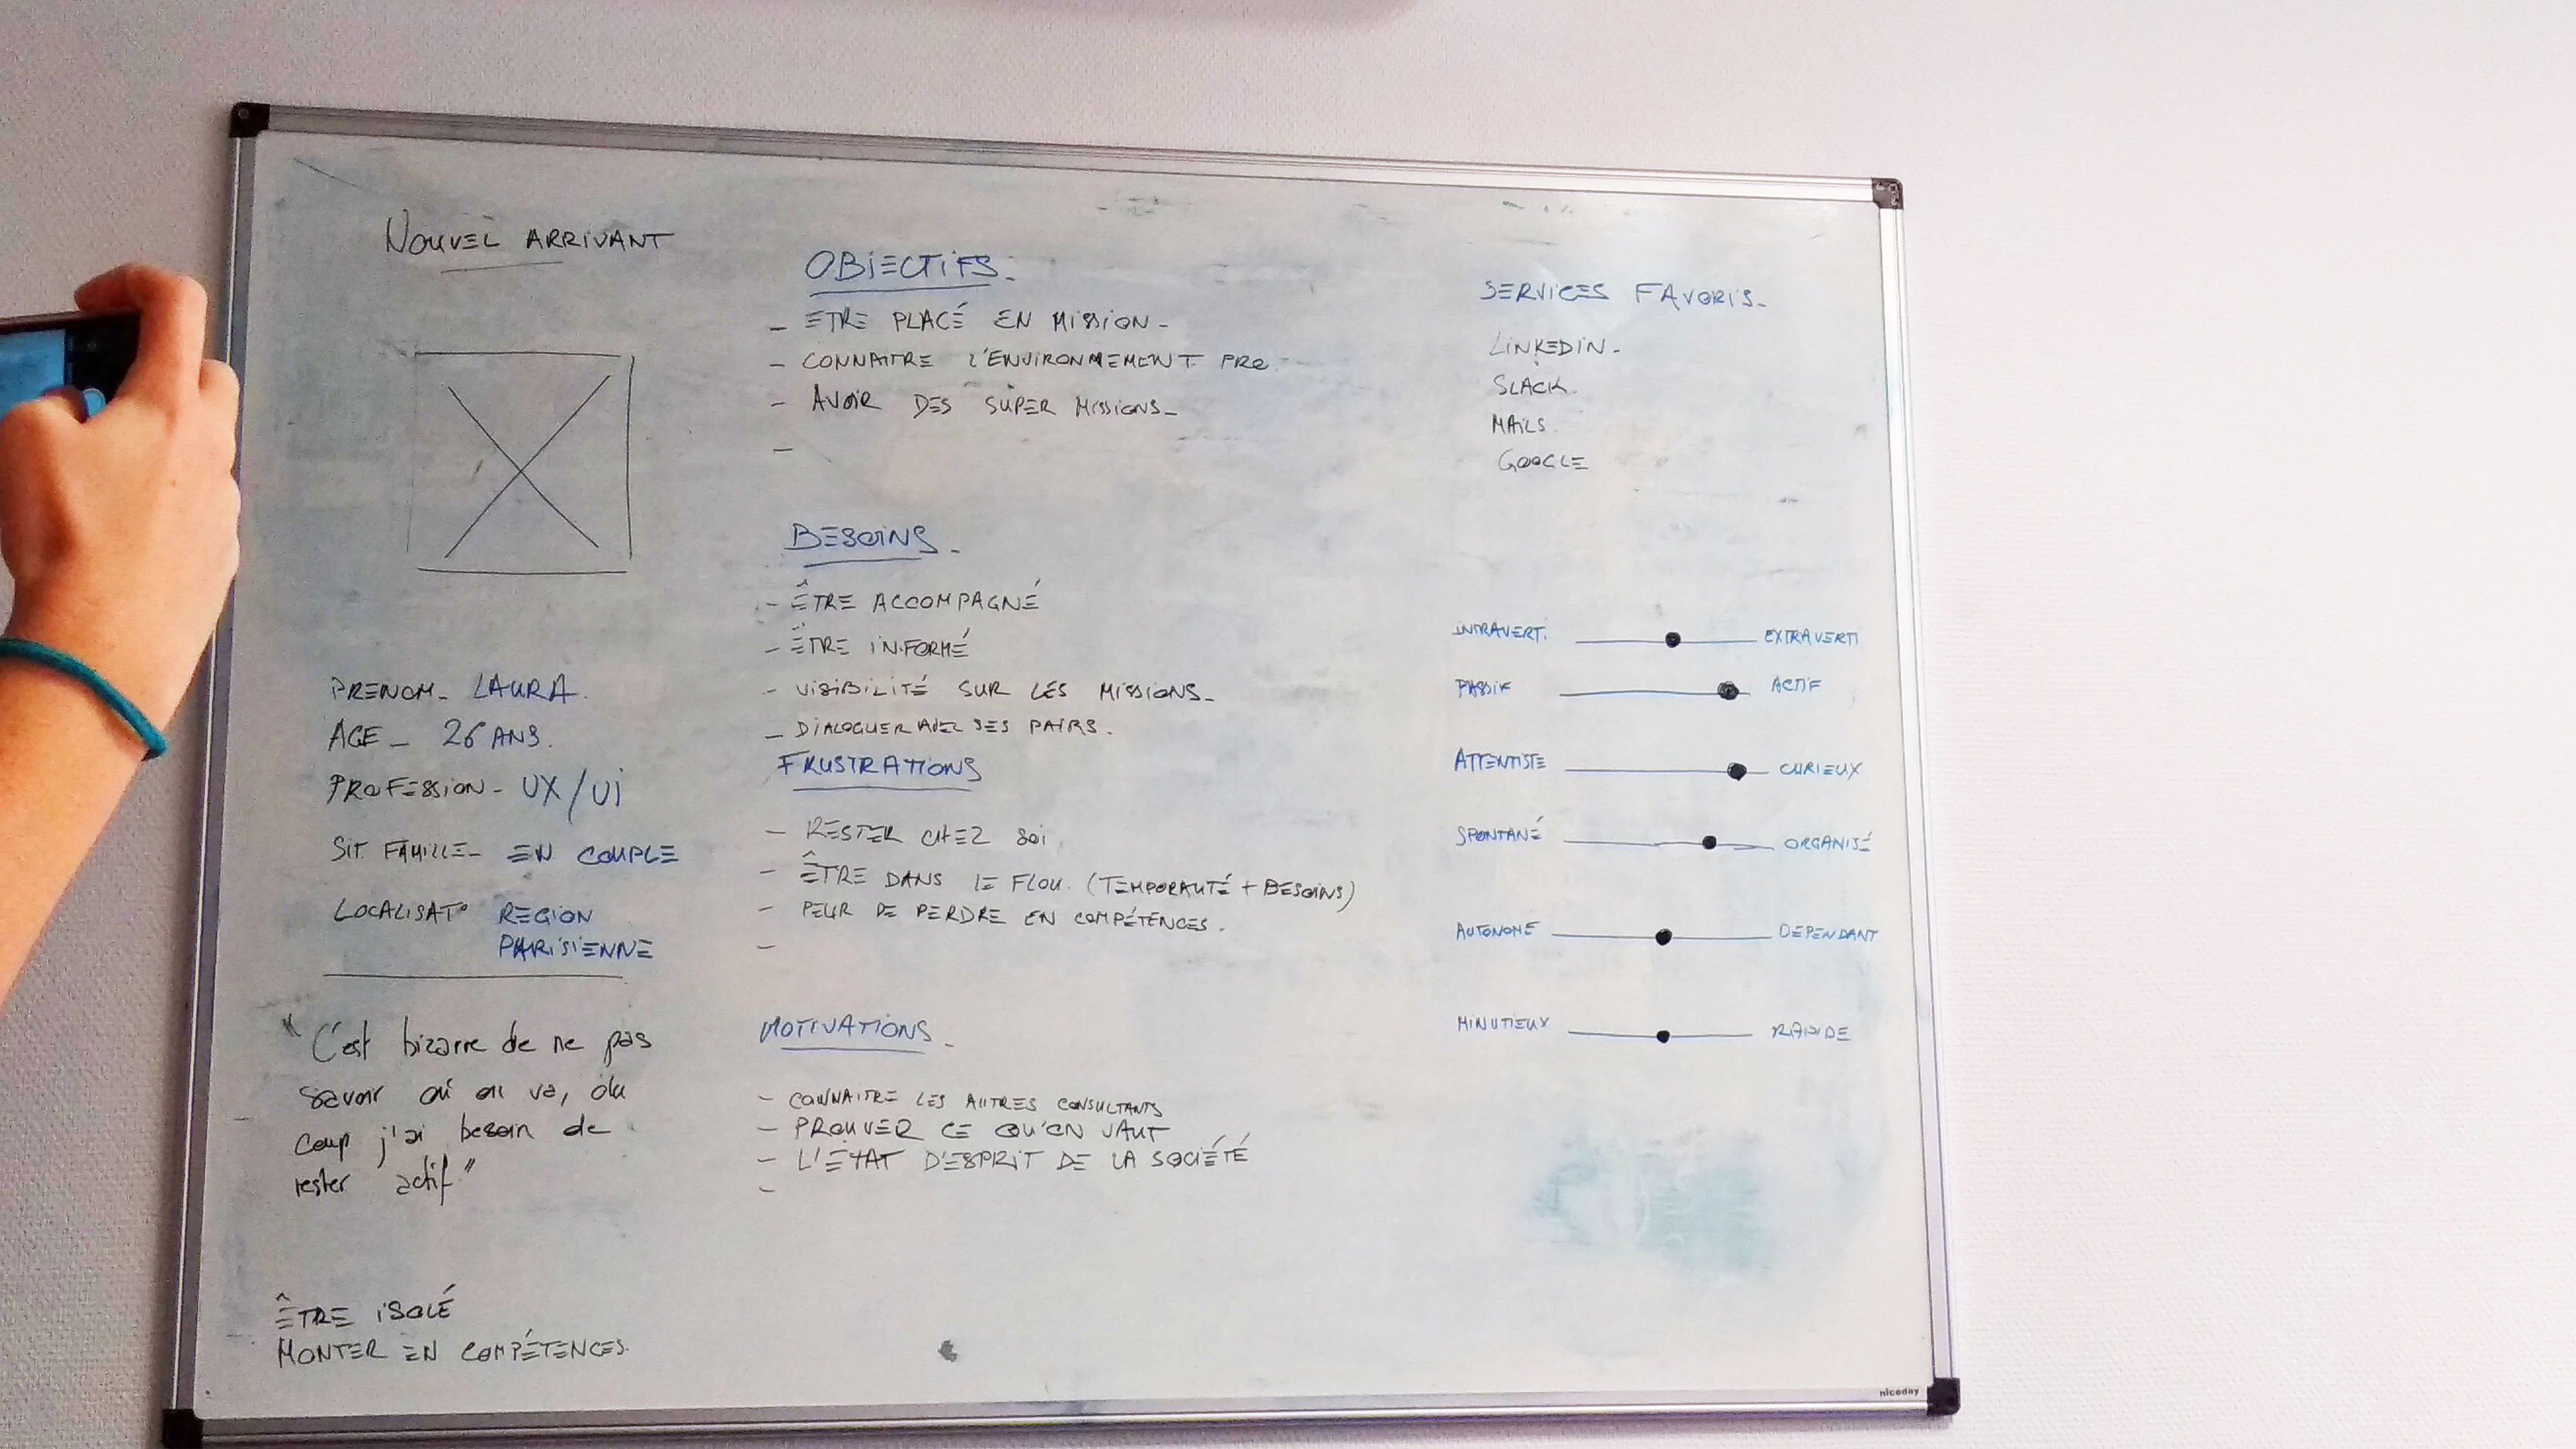 NOUVEL ARRIVANT
PRENOM_ LAURA.
AGE_ 26 ANS.
PROFESSION_ UX/Ui
SIT. FAMILLE_ EN COUPLE
LOCALISAT° REGION
PARISIENNE
"C'est bizarre de ne pas
savoir où on va, du
coup j'ai besoin de
rester actif"
ÊTRE ISOLÉ
MONTER EN COMPÉTENCES.
OBJECTIFS_
_ ETRE PLACÉ EN MISSION_
_ CONNAITRE L'ENVIRONNEMENT PRO
- AVOIR DES SUPER MISSIONS_
-
BESOINS_
- ÊTRE ACCOMPAGNÉ
- ÊTRE INFORMÉ
- VISIBILITÉ SUR LES MISSIONS_
_ DIALOGUER AVEC SES PAIRS.
FRUSTRATIONS
- RESTER CHEZ SOI
- ÊTRE DANS LE FLOU. (TEMPORALITÉ + BESOINS)
- PEUR DE PERDRE EN COMPÉTENCES.
-
MOTIVATIONS_
- CONNAITRE LES AUTRES CONSULTANTS
- PROUVER CE QU'ON VAUT
- L'ÉTAT D'ESPRIT DE LA SOCIÉTÉ
-
SERVICES FAVORIS_
LINKEDIN_
SLACK.
MAILS.
GOOGLE
INTRAVERTI EXTRAVERTI
PASSIF ACTIF
ATTENTISTE CURIEUX
SPONTANÉ ORGANISÉ
AUTONOME DEPENDANT
MINUTIEUX RAPIDE
niceday